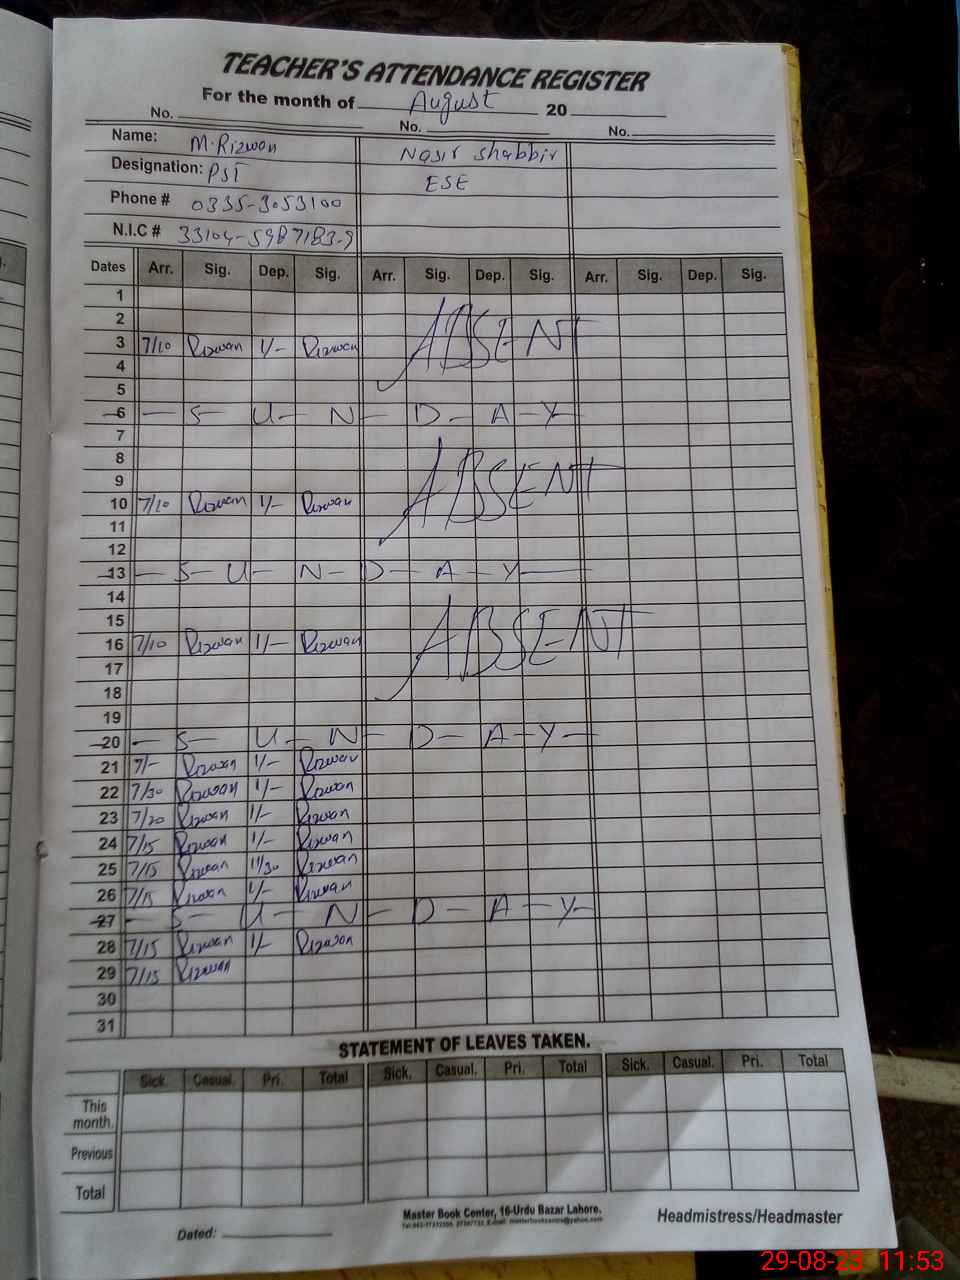 TEACHER'S ATTENDANCE REGISTER
For the month of August 20
No. No. No.
Name: M.Rizwan Nasir Shabbir
Designation: PST ESE
Phone # 0335-3053100
N.I.C # 33104-5987183-9
Dates Arr. Sig. Dep. Sig. Arr. Sig. Dep. Sig. Arr. Sig. Dep. Sig.
1
2
3 7/10 Rizwan 1/- Rizwan ABSENT
4
5
6 - S - U - N - D - A - Y -
7
8
9 ABSENT
10 7/10 Rizwan 1/- Rizwan
11
12
13 - S - U - N - D - A - Y -
14
15
16 7/10 Rizwan 1/- Rizwan ABSENT
17
18
19
20 - S - U - N - D - A - Y -
21 7/- Rizwan 1/- Rizwan
22 7/30 Rizwan 1/- Rizwan
23 7/20 Rizwan 1/- Rizwan
24 7/15 Rizwan 1/- Rizwan
25 7/15 Rizwan 11/30 Rizwan
26 7/15 Rizwan 1/- Rizwan
27 - S - U - N - D - A - Y -
28 7/15 Rizwan 1/- Rizwan
29 7/15 Rizwan
30
31
STATEMENT OF LEAVES TAKEN.
Sick. Casual. Pri. Total Sick. Casual. Pri. Total Sick. Casual. Pri. Total
This month.
Previous
Total
Master Book Center, 16-Urdu Bazar Lahore.
Dated: Headmistress/Headmaster
29-08-23 11:53